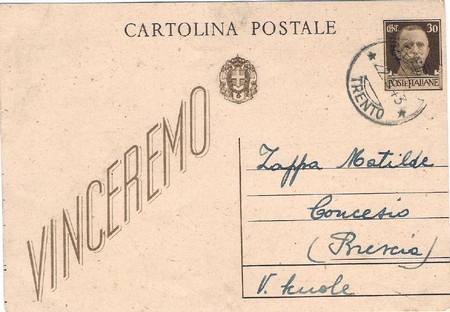 CARTOLINA POSTALE
CENT. 30
POSTE ITALIANE
TRENTO
VINCEREMO
Zappa Matilde
Concesio
(Brescia)
V. Scuole